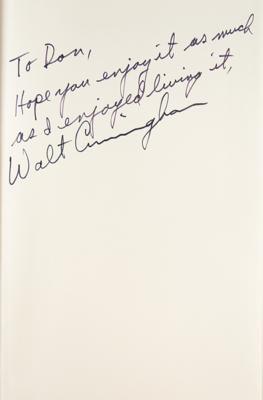 To Don,
Hope you enjoy it as much
as I enjoyed living it,
Walt Cunningham